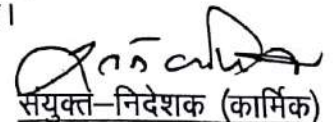 ।
संयुक्त–निदेशक (कार्मिक)